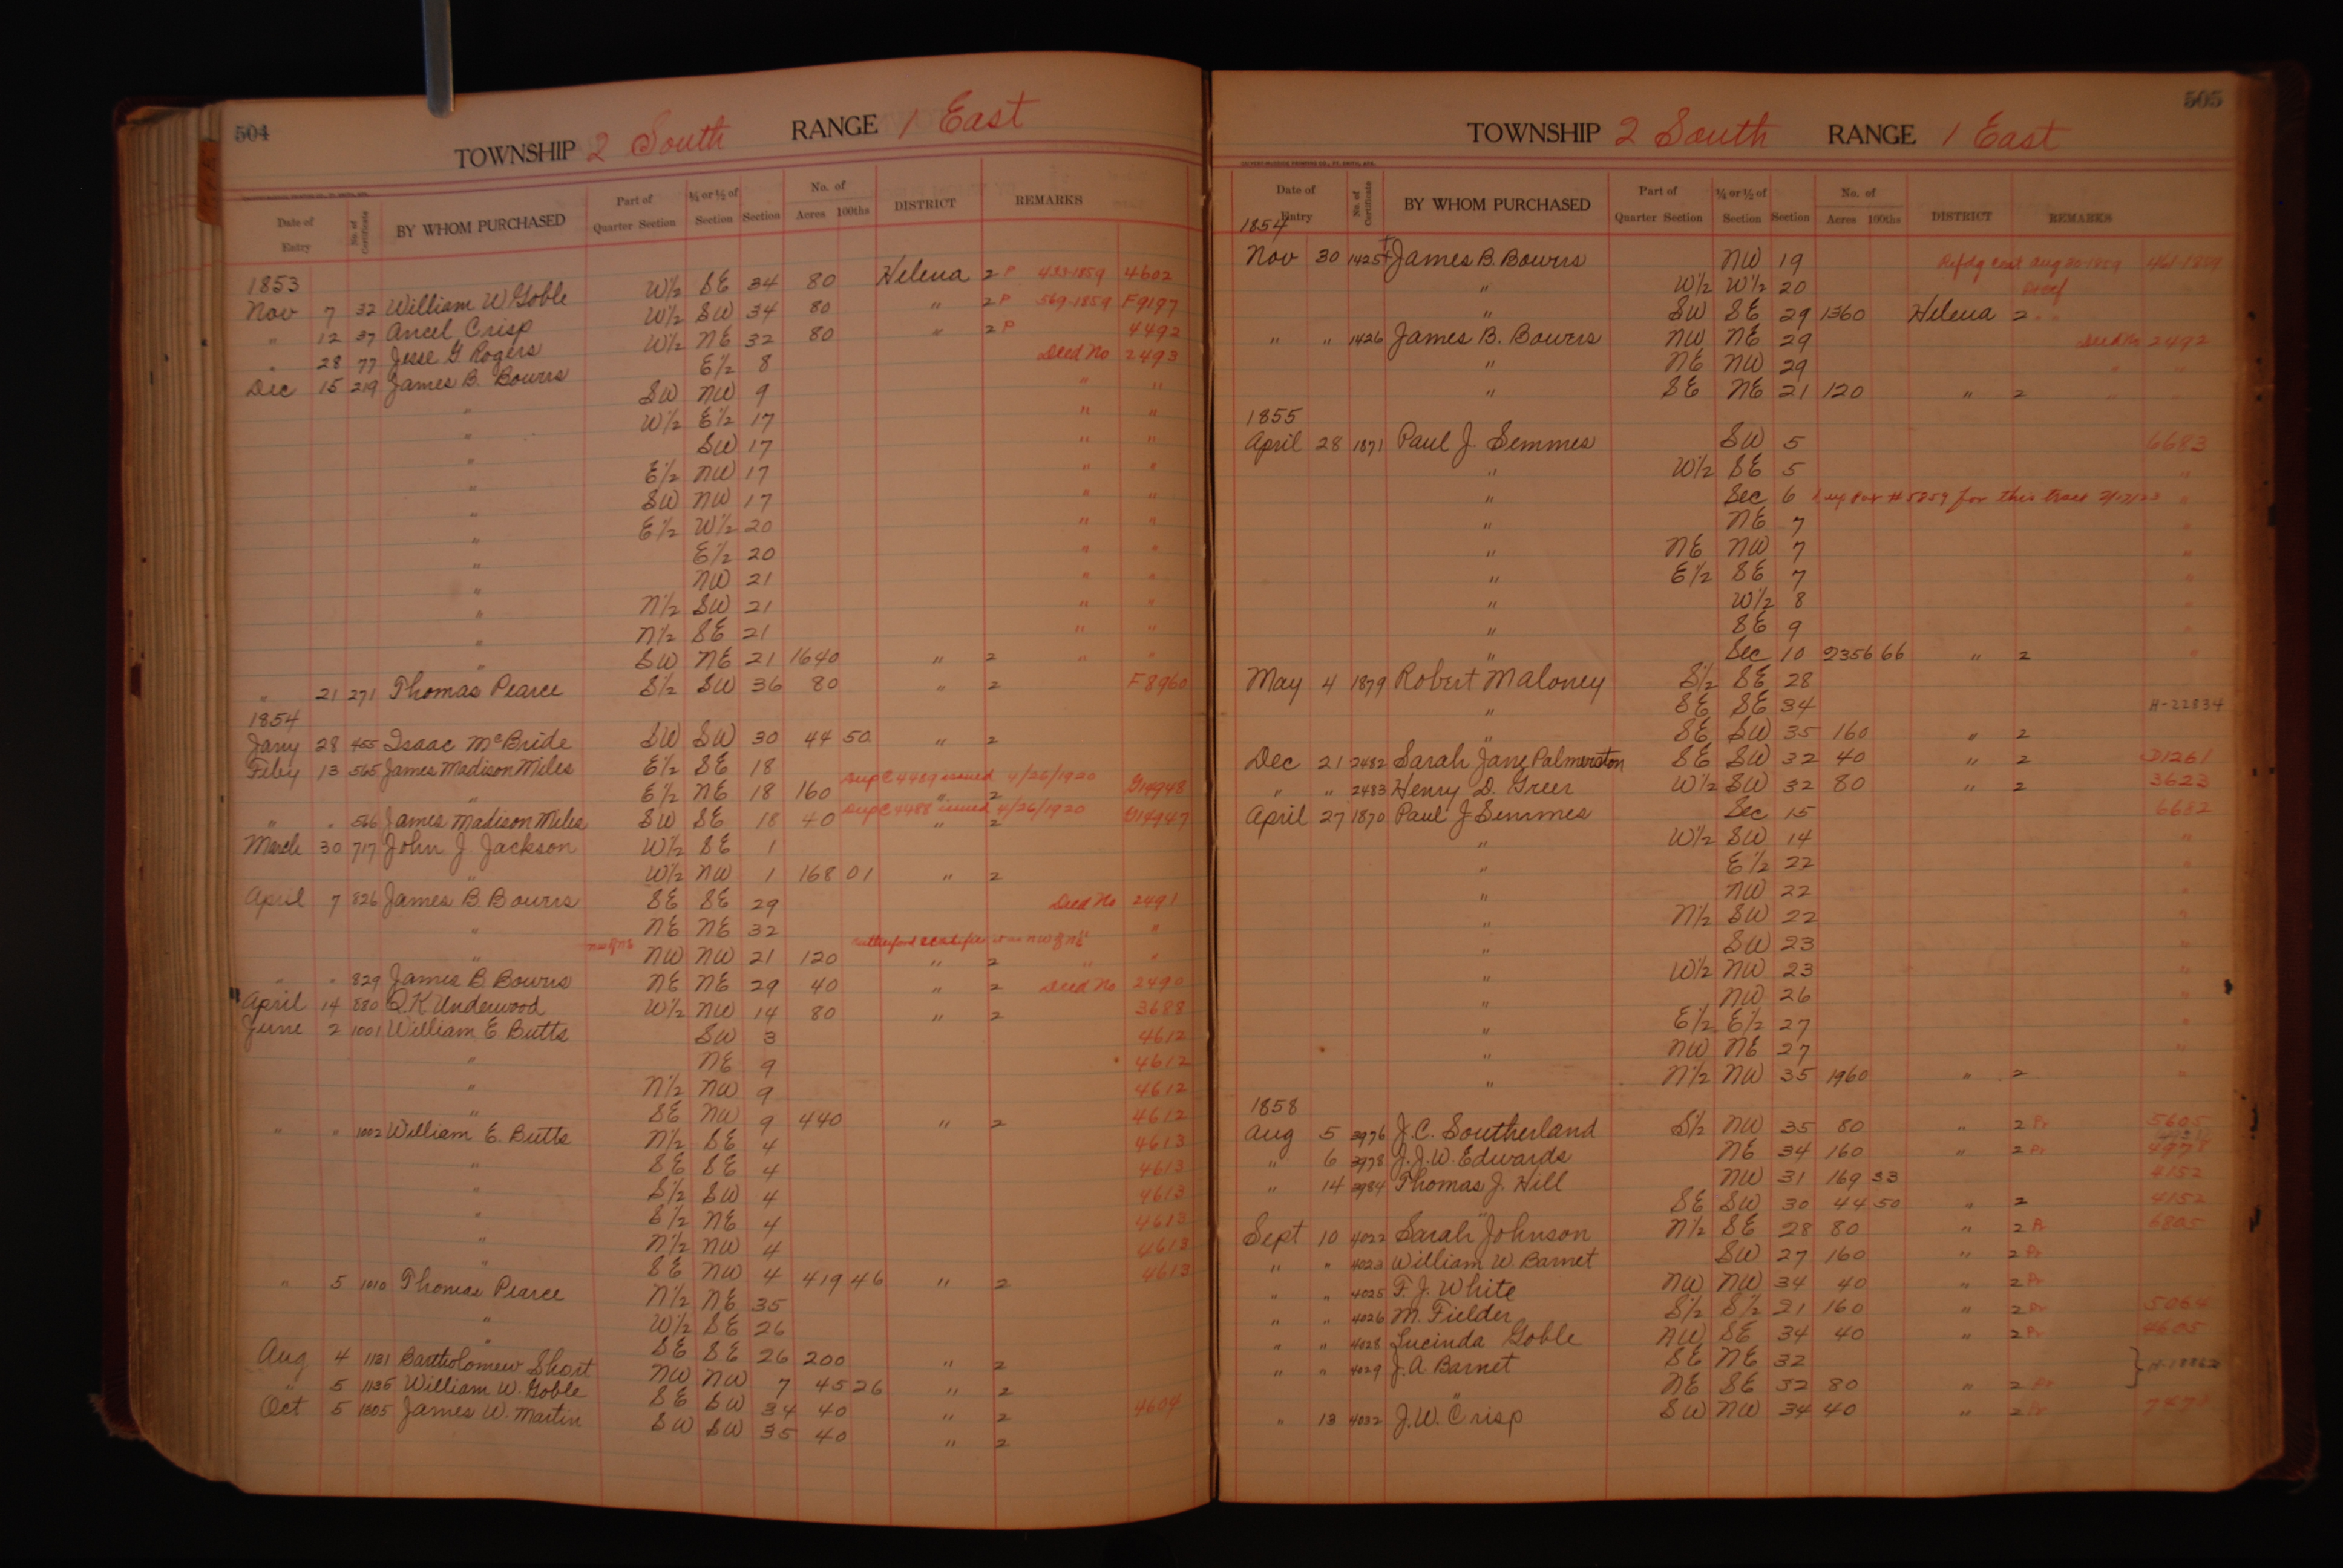 504
TOWNSHIP 2 South RANGE 1 East
Date of Entry | No. of Certificate | BY WHOM PURCHASED | Part of Quarter Section | ¼ or ½ of Section | Section | No. of Acres 100ths | DISTRICT | REMARKS
1853
Nov 7 32 William W. Goble W½ SE 34 80 Helena 2 P 433-1859 4602
" 12 37 Ancel Crisp W½ SW 34 80 " 2 P 569-1859 F9197
" 28 77 Jesse G Rogers W½ NE 32 80 " 2 P 4492
Dec 15 219 James B. Bowrs E½ 8 Deed No 2493
" SW NW 9 " "
" W½ E½ 17 " "
" SW 17 " "
" E½ NW 17 " "
" SW NW 17 " "
" E½ W½ 20 " "
" E½ 20 " "
" NW 21 " "
" N½ SW 21 " "
" N½ SE 21 " "
" SW NE 21 1640 " 2 " "
" 21 271 Thomas Pearce S½ SW 36 80 " 2 F8960
1854
Jany 28 455 Isaac McBride SW SW 30 44 50 " 2
Feby 13 565 James Madison Miles E½ SE 18
" E½ NE 18 160 Dup C 4489 issued 4/26/1920 " 2 G14948
" " 566 James Madison Miles SW SE 18 40 Dup C 4488 issued 4/26/1920 " 2 G14947
March 30 717 John J. Jackson W½ SE 1
" W½ NW 1 168 01 " 2
April 7 826 James B. Bowrs SE SE 29 Deed No 2491
" NE NE 32 "
" NW of NE NW NW 21 120 " 2 " "
" " 829 James B. Bowrs NE NE 29 40 " 2 Deed No 2490
April 14 880 Q. K Underwood W½ NW 14 80 " 2 3688
June 2 1001 William E. Butts SW 3 4612
" NE 9 4612
" N½ NW 9 4612
" SE NW 9 440 " 2 4612
" " 1002 William E. Butts N½ SE 4 4613
" SE SE 4 4613
" S½ SW 4 4613
" E½ NE 4 4613
" N½ NW 4 4613
" SE NW 4 419 46 " 2 4613
" 5 1010 Thomas Pearce N½ NE 35
" W½ SE 26
" SE SE 26 200 " 2
Aug 4 1131 Bartholomew Short NW NW 7 45 26 " 2
" 5 1135 William W. Goble SE SW 34 40 " 2 4604
Oct 5 1305 James W. Martin SW SW 35 40 " 2
505
TOWNSHIP 2 South RANGE 1 East
Date of Entry | No. of Certificate | BY WHOM PURCHASED | Part of Quarter Section | ¼ or ½ of Section | Section | No. of Acres 100ths | DISTRICT | REMARKS
1854
Nov 30 1425 James B. Bowrs NW 19 Aug 20-1859
" W½ W½ 20
" SW SE 29 1360 Helena 2
" " 1426 James B. Bowrs NW NE 29 Deed No 2492
" NE NW 29 " "
" SE NE 21 120 " 2 " "
1855
April 28 1871 Paul J. Semmes SW 5 6683
" W½ SE 5 "
" Sec 6 #5859 for this tract "
" NE 7 "
" NE NW 7 "
" E½ SE 7 "
" W½ 8 "
" SE 9 "
" Sec 10 2356 66 " 2 "
May 4 1879 Robert Maloney S½ SE 28
" SE SE 34 H-22834
" SE SW 35 160 " 2
Dec 21 2482 Sarah Jane Palmerston SE SW 32 40 " 2 D1261
" " 2483 Henry D. Greer W½ SW 32 80 " 2 3623
April 27 1870 Paul J Semmes Sec 15 6682
" W½ SW 14 "
" E½ 22 "
" NW 22 "
" N½ SW 22 "
" SW 23 "
" W½ NW 23 "
" NW 26 "
" E½ E½ 27 "
" NW NE 27 "
" N½ NW 35 1960 " 2 "
1858
Aug 5 3976 J. C. Southerland S½ NW 35 80 " 2 Pr 5605
" 6 3978 J. J. W. Edwards NE 34 160 " 2 Pr
" 14 3984 Thomas J. Hill NW 31 169 33 4152
" SE SW 30 44 50 " 2 4152
Sept 10 4022 Sarah Johnson N½ SE 28 80 " 2 Pr 6805
" " 4023 William W. Barnet SW 27 160 " 2 Pr
" " 4025 F. J. White NW NW 34 40 " 2 Pr
" " 4026 M. Fielder S½ S½ 21 160 " 2 Pr 5064
" " 4028 Lucinda Goble NW SE 34 40 " 2 Pr 4605
" " 4029 J. A. Barnet SE NE 32
" NE SE 32 80 " 2 Pr
" 13 4032 J. W. Crisp SW NW 34 40 " 2 Pr